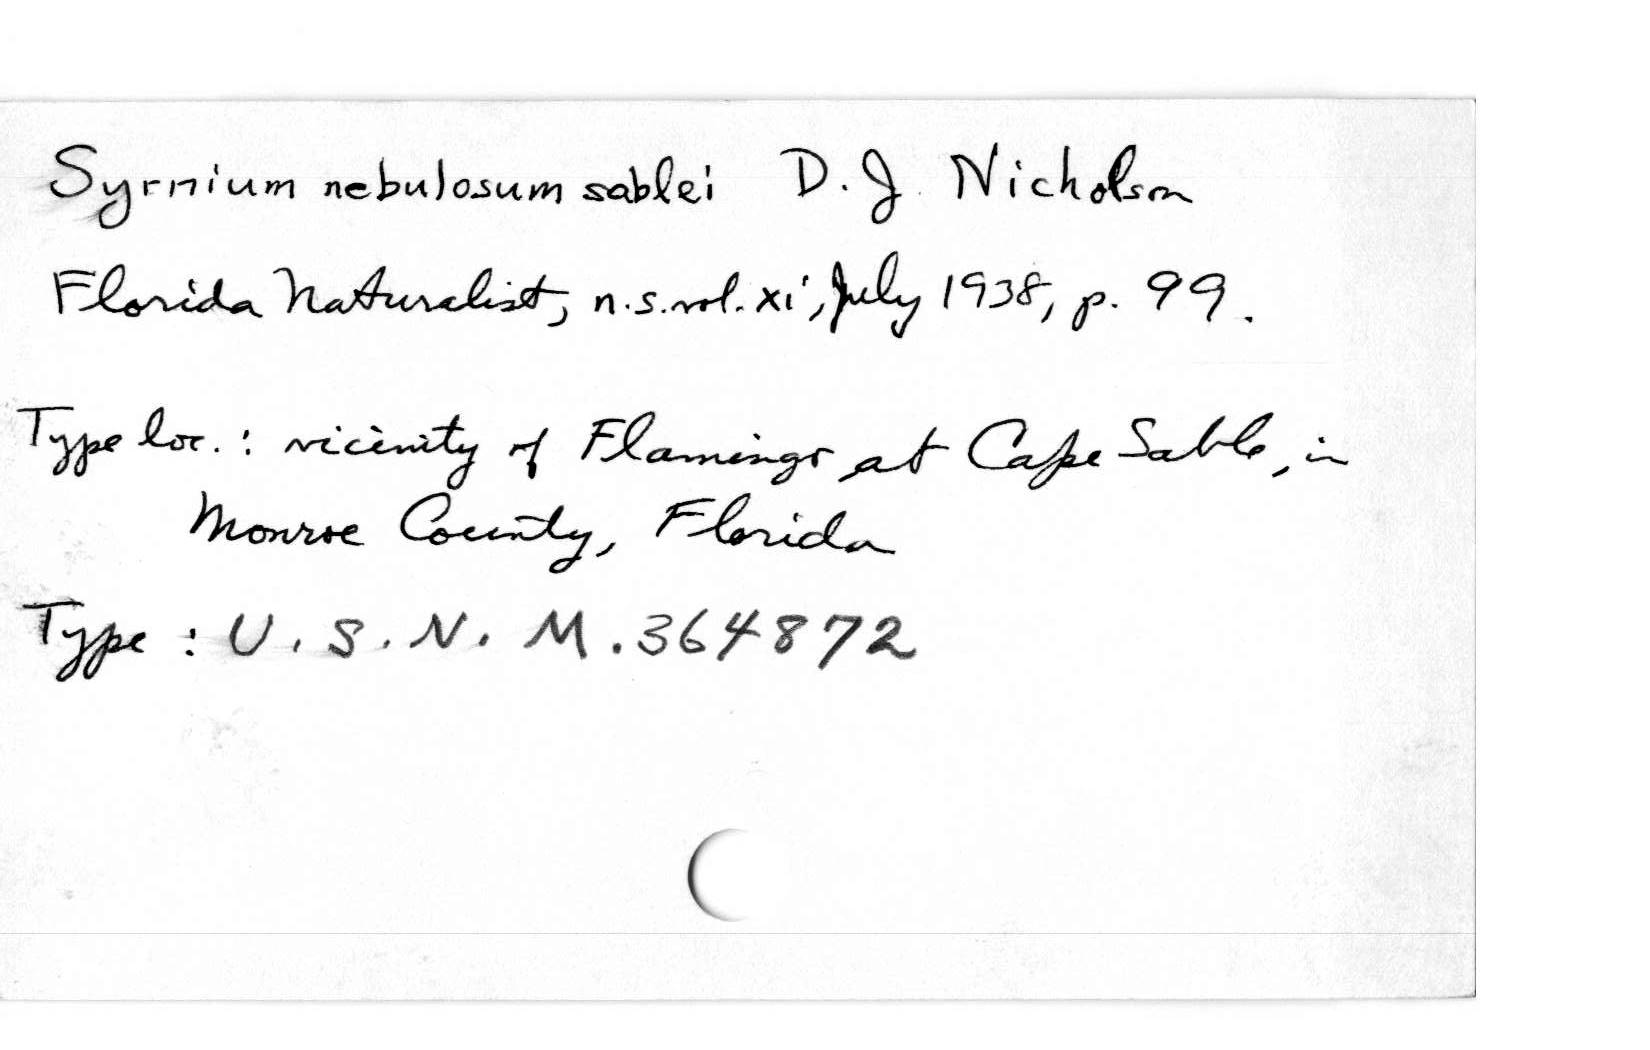 Syrnium nebulosum sablei D. J. Nicholson
Florida Naturalist, n.s. vol. xi, July 1938, p. 99.
Type loc.: vicinity of Flamingo, at Cape Sable, in
Monroe County, Florida
Type: U.S.N.M. 364872